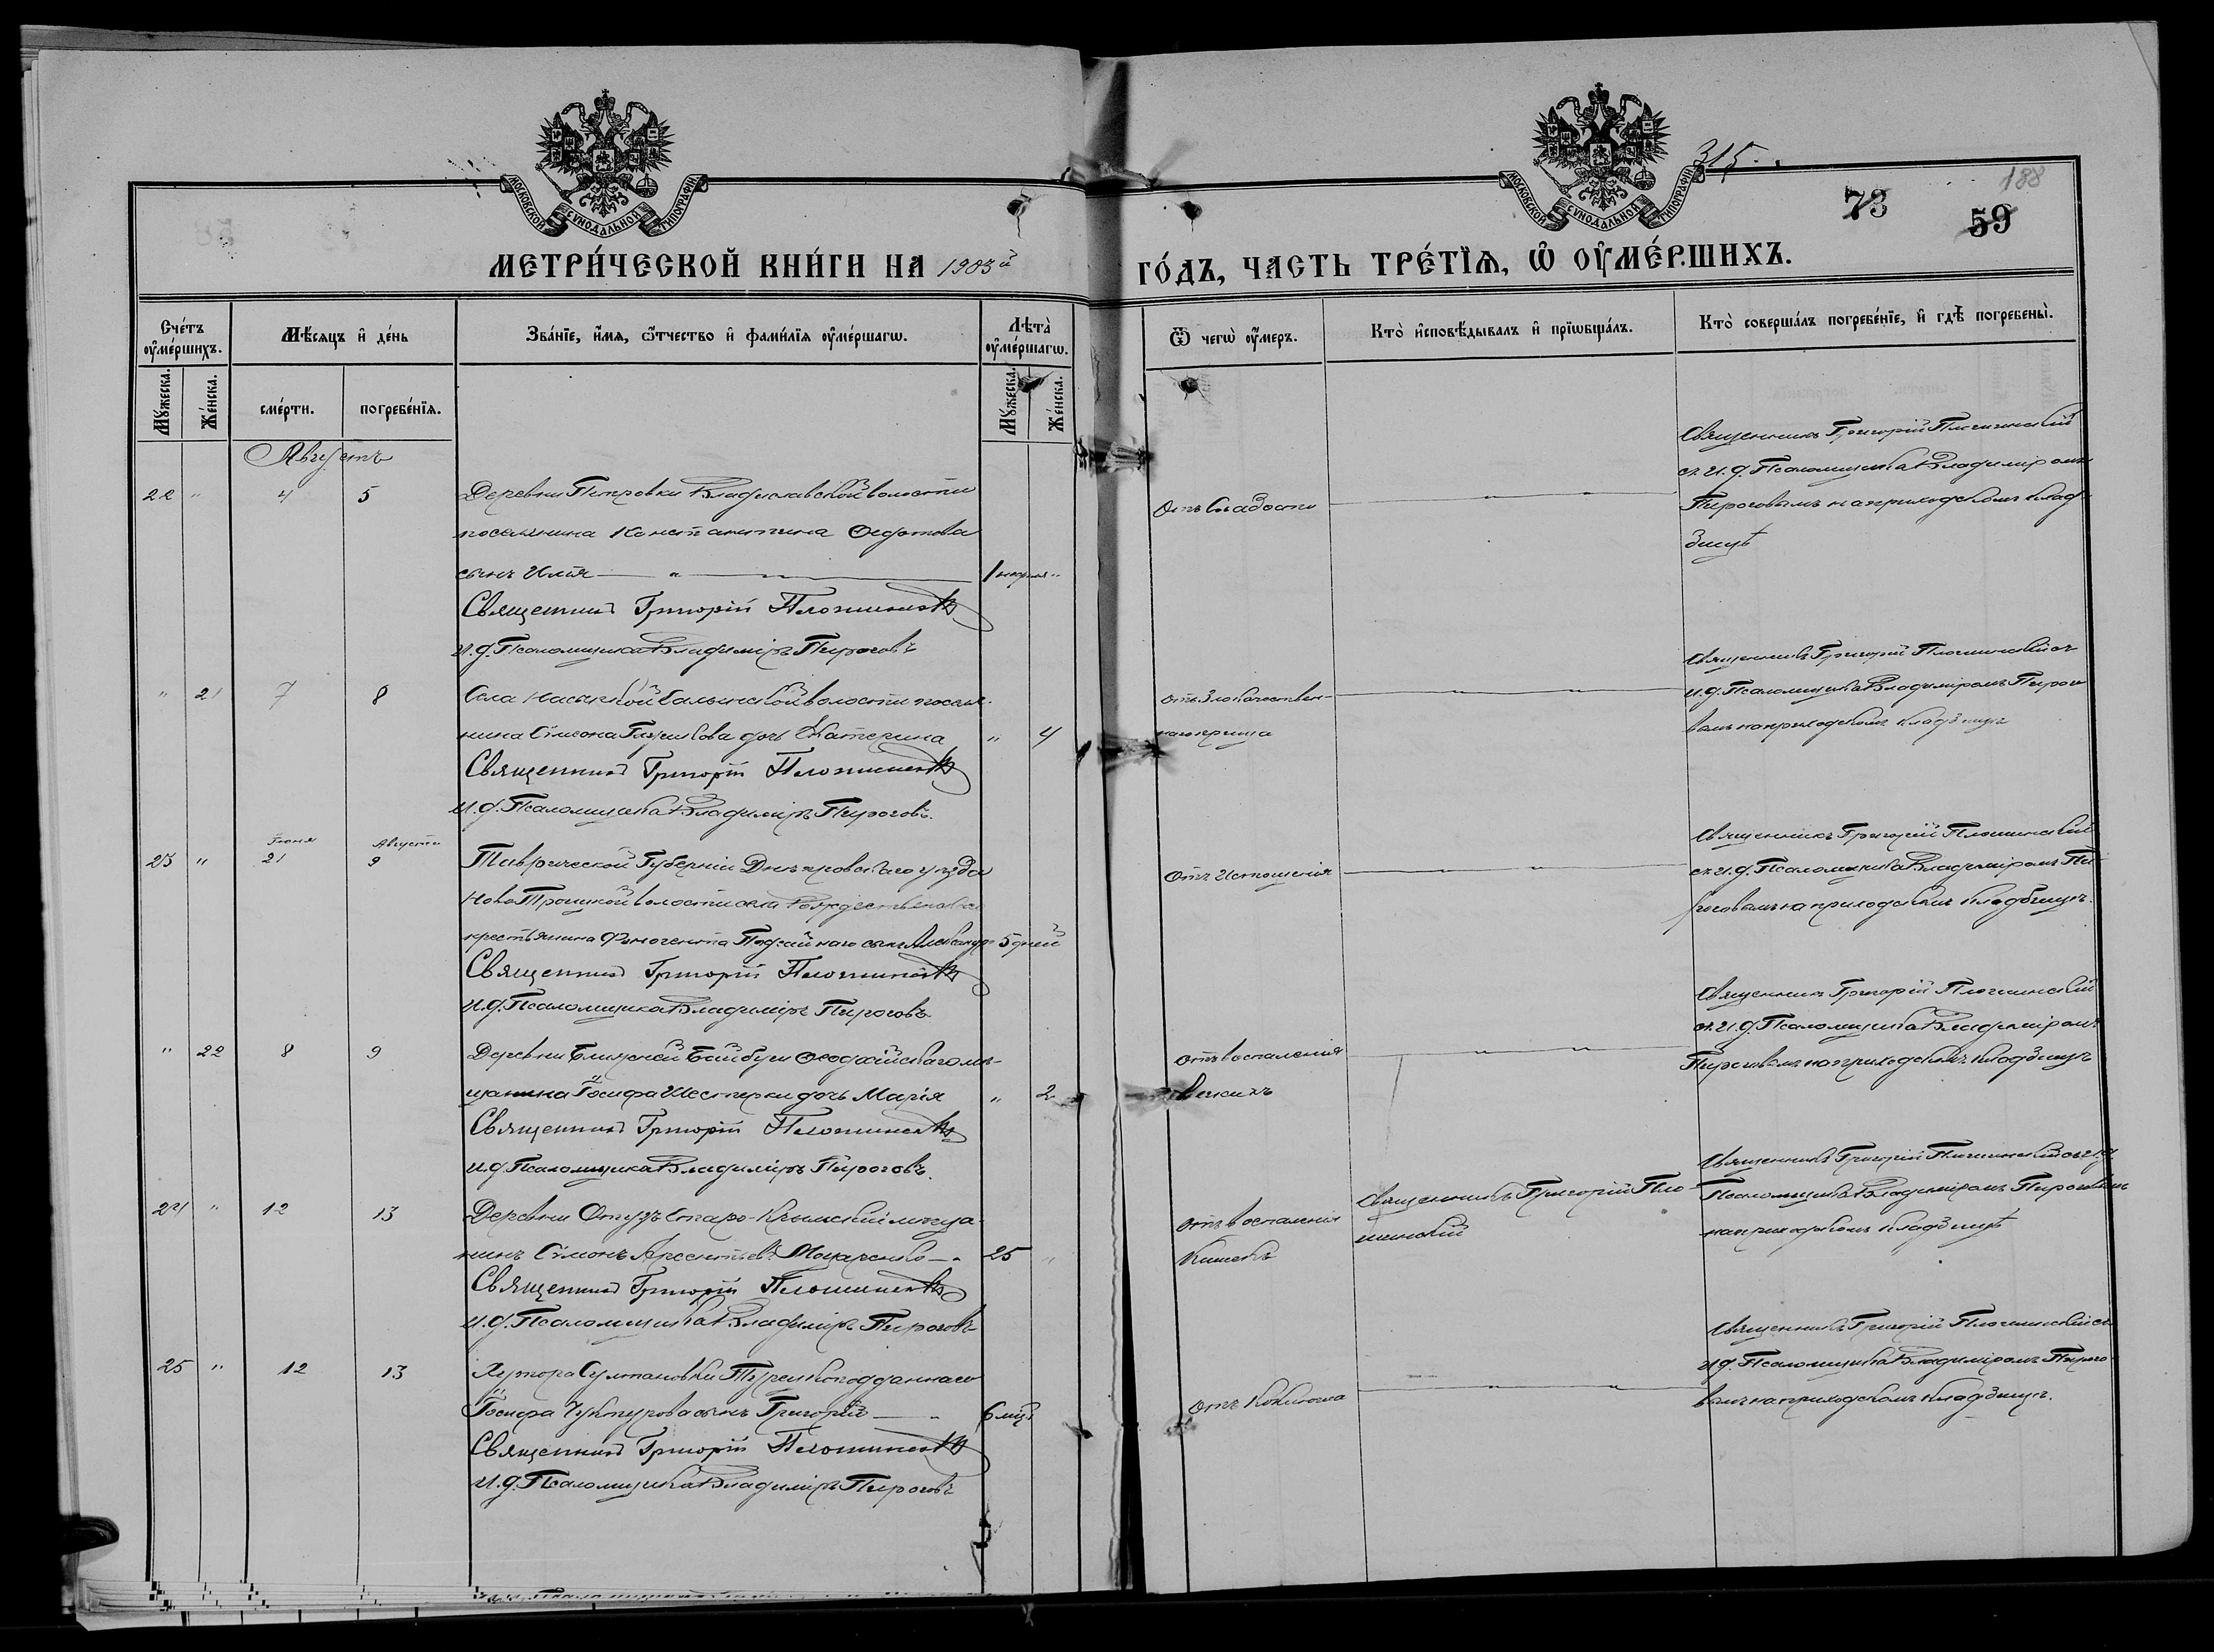 МОСКОВСКОЙ СѴНОДАЛЬНОЙ ТИПОГРАФІИ
МОСКОВСКОЙ СѴНОДАЛЬНОЙ ТИПОГРАФІИ
315.
188
73
59
МЕТРИ́ЧЕСКОЙ КНИ́ГИ НА 1903й
ГО́ДЪ, ЧАСТЬ ТРЕ́ТІѦ, Ѡ ОУ҆МЕ́РШИХЪ.
Сче́тъ оу҆ме́ршихъ.
Мѣ́сяцъ и҆ де́нь
Зва́нїе, и҆́мѧ, ѻ҆́тчество и҆ фами́лїѧ оу҆ме́ршагѡ.
Лѣта̀ оу҆ме́ршагѡ.
Ѿ чегѡ̀ оу҆́меръ.
Кто̀ и҆сповѣ́дывалъ и҆ прїѡбща́лъ.
Кто̀ соверша́лъ погребе́нїе, и҆ гдѣ̀ погребены̀.
Мꙋ́жеска.
Же́нска.
сме́рти.
погребе́нїѧ.
Мꙋ́жеска.
Же́нска.
Августъ
22 " 4 5
Деревни Петровки Владиславской волости
поселянина Константина Федотова
сынъ Илья 1 недѣля "
Священникъ Григорій Плошинскій
И. д. Псаломщика Владиміръ Пироговъ
Отъ слабости
Священникъ Григорій Плошинскій
съ И. д. Псаломщика Владиміромъ
Пироговымъ на приходскомъ клад-
бищѣ
" 21 7 8
Села Насыпкой Салынской волости поселя-
нина Симеона дочь Екатерина " 4
Священникъ Григорій Плошинскій
И. д. Псаломщика Владиміръ Пироговъ.
отъ Злокачествен-
наго крупа
Священникъ Григорій Плошинскій съ
И. д. Псаломщика Владиміромъ Пирого
вымъ на приходскомъ кладбищѣ
Іюня Августа
23 " 21 9
Таврической Губерніи Днѣпровскаго уѣзда
Ново Троицкой волости села Рождественскаго
крестьянина сынъ Александръ 5 дней
Священникъ Григорій Плошинскій
И. д. Псаломщика Владиміръ Пироговъ
Отъ Истощенія
Священникъ Григорій Плошинскій
съ И. д. Псаломщика Владиміромъ Пи
роговымъ на приходскомъ кладбищѣ.
" 22 8 9
Деревни Ближней Байбуги Феодосійскаго мѣ-
щанина Іосифа Шестерки дочь Марія " 2
Священникъ Григорій Плошинскій
И. д. Псаломщика Владиміръ Пироговъ.
отъ воспаленія
Священникъ Григорій Плошинскій
съ И. д. Псаломщика Владиміромъ
Пироговымъ на приходскомъ кладбищѣ
24 " 12 13
Деревни Отузъ Старо-Крымскій мѣща-
нинъ Симонъ Арсентьевъ 25 "
Священникъ Григорій Плошинскій
И. д. Псаломщика Владиміръ Пироговъ
отъ воспаленія
кишекъ
Священникъ Григорій Пло-
шинскій
Священникъ Григорій Плошинскій съ И. д.
Псаломщика Владиміромъ Пироговымъ
на приходскомъ кладбищѣ
25 " 12 13
Хутора Султановки Турецкоподданнаго
Іосифа сынъ Григорій 6 мцъ
Священникъ Григорій Плошинскій
И. д. Псаломщика Владиміръ Пироговъ
отъ Коклюша
Священникъ Григорій Плошинскій съ
И. д. Псаломщика Владиміромъ Пирого
вымъ на приходскомъ кладбищѣ.